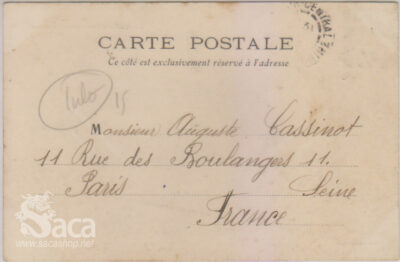 CARTE POSTALE
Ce côté est exclusivement réservé à l'adresse
15
Monsieur Auguste Cassinot
11 Rue des Boulangers 11.
Paris Seine
France
Saca
www.sacashop.net